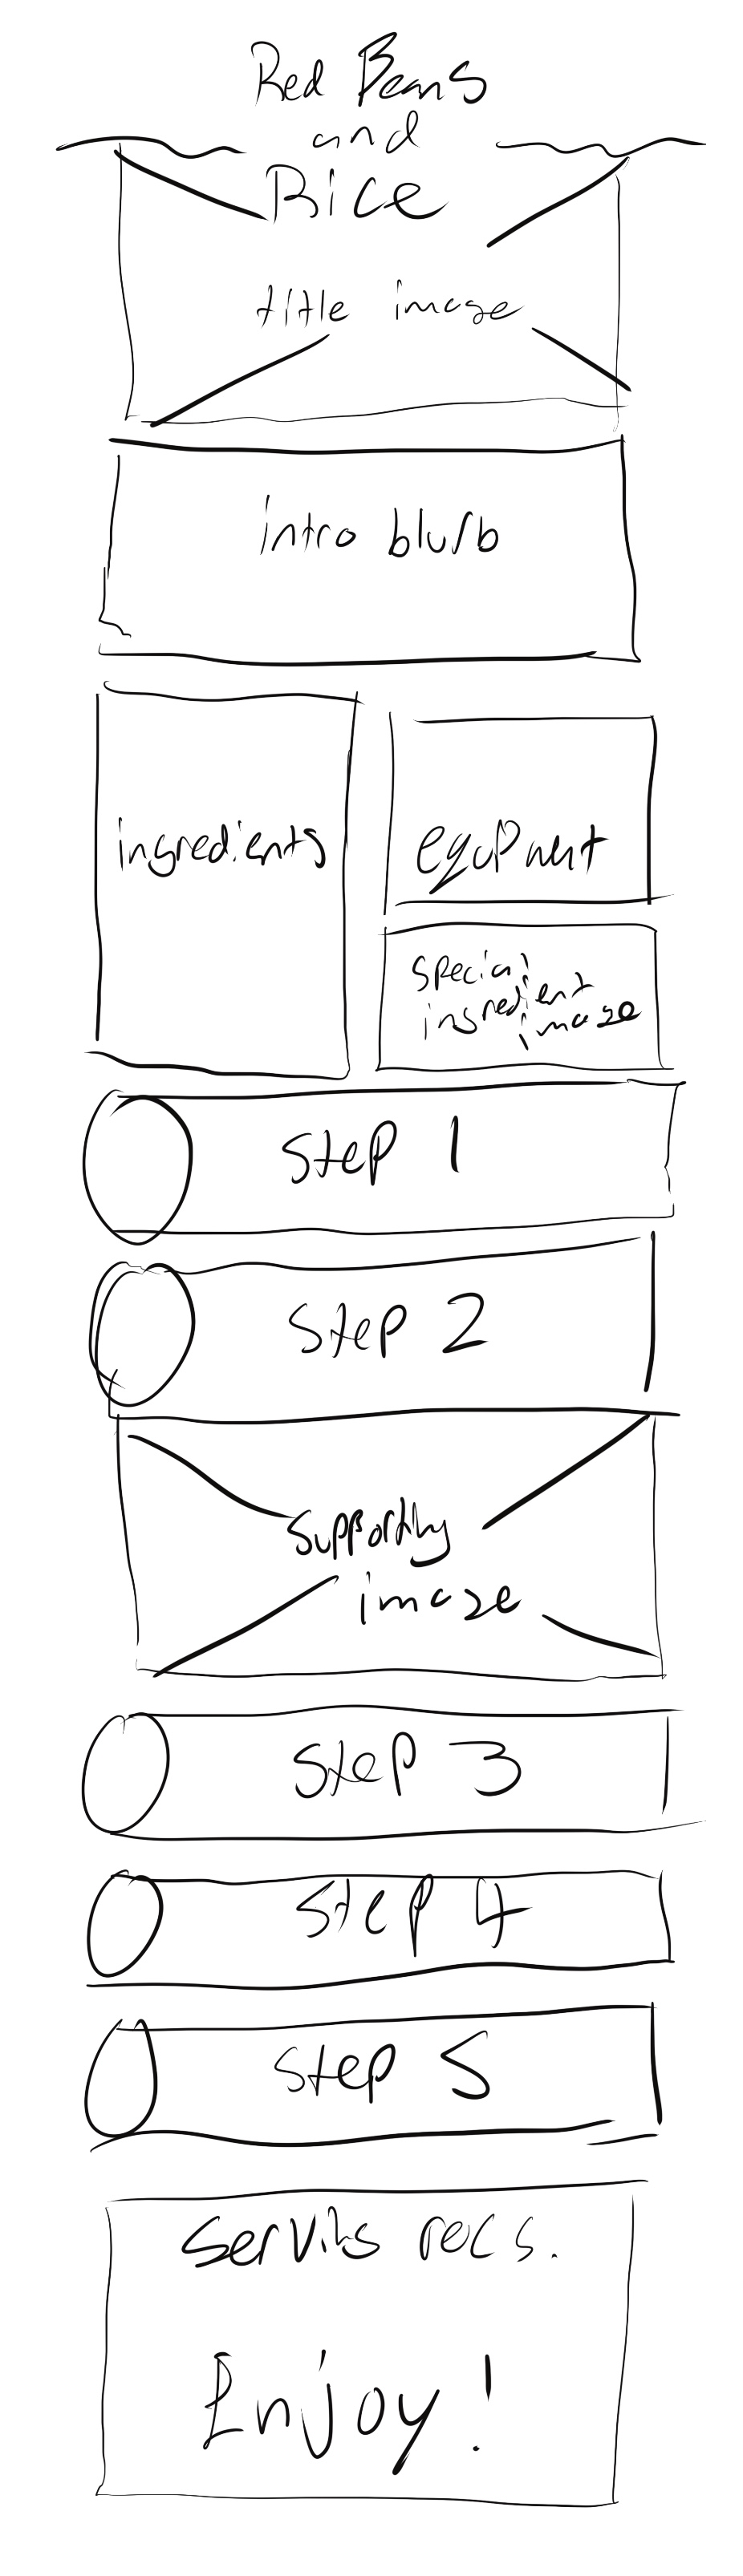 Red Beans
and
Rice
title image
intro blurb
ingredients
equipment
special
ingredient
image
Step 1
Step 2
Supporting
image
Step 3
Step 4
Step 5
Serving recs.
Enjoy!